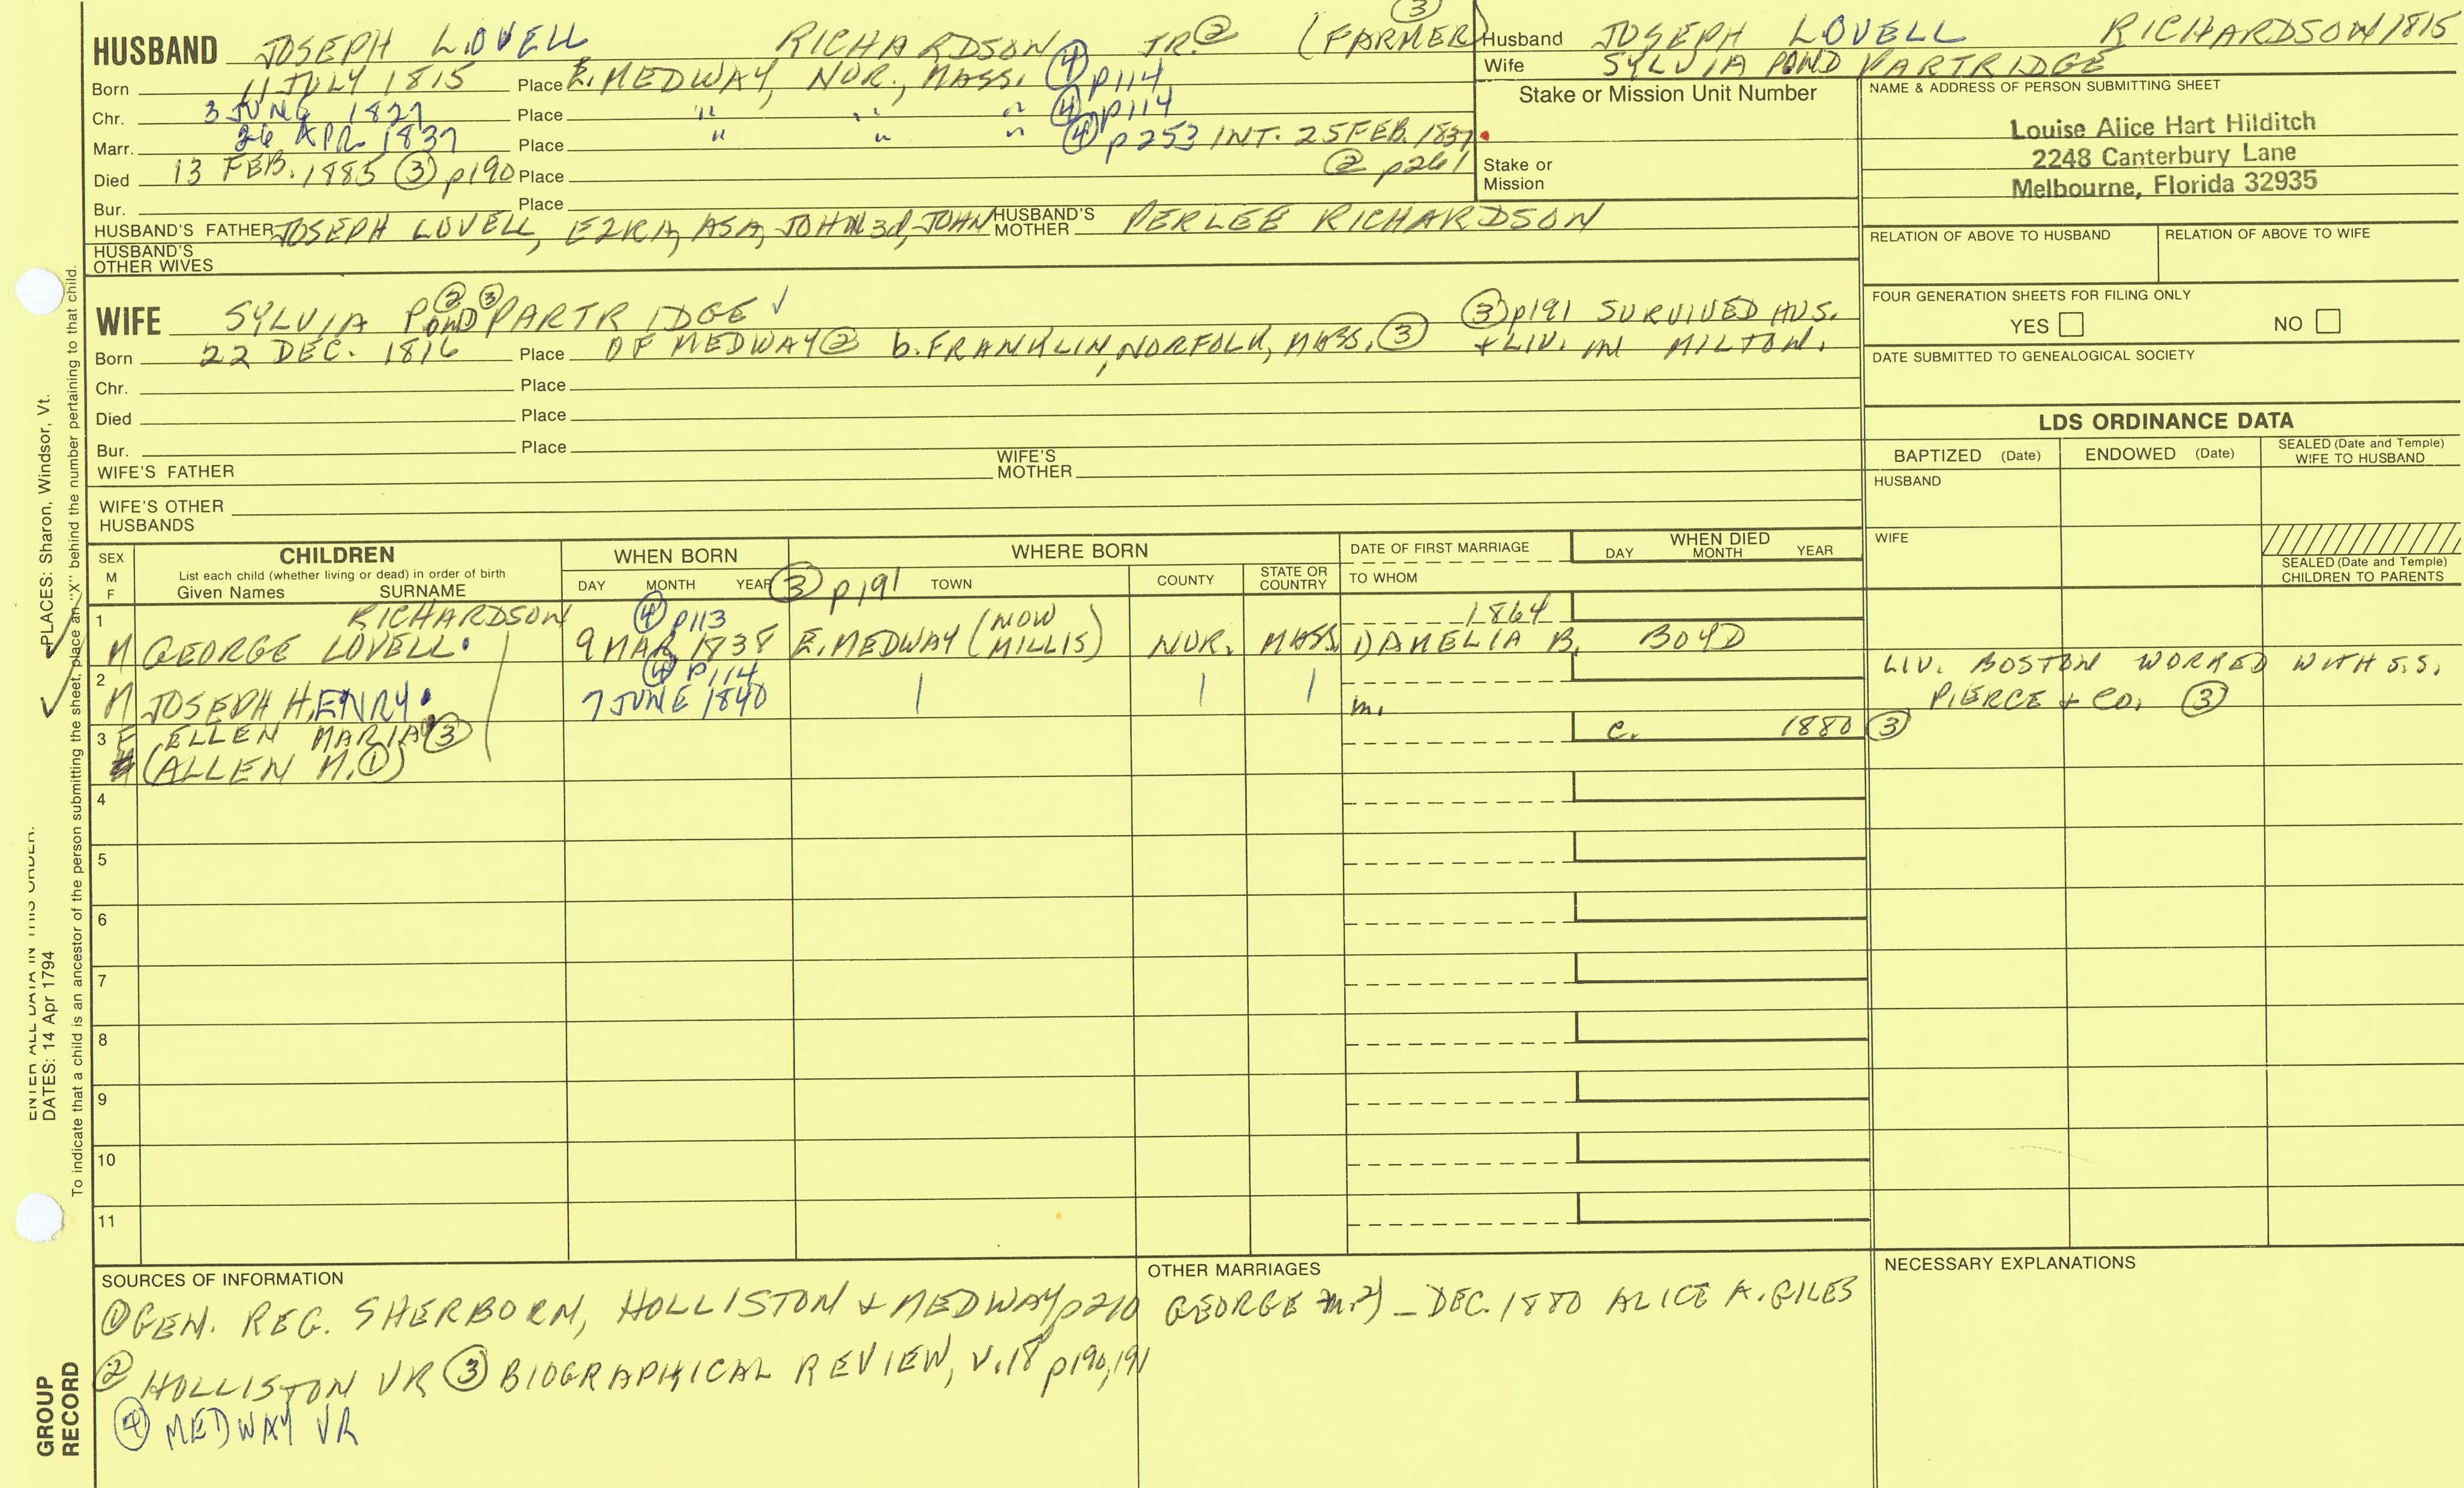 HUSBAND JOSEPH LOVELL RICHARDSON JR. ② (FARMER) ③
Born 11 JULY 1815 Place E. MEDWAY, NOR., MASS. ④ p114
Chr. 3 JUNE 1827 Place " " " ④ p114
Marr. 26 APR 1837 Place " " " ④ p253 INT. 25 FEB. 1837.
② p261
Died 13 FEB. 1885 ③ p190 Place
Bur. Place
HUSBAND'S FATHER JOSEPH LOVELL, EZRA, ASA, JOHN 3d, JOHN HUSBAND'S MOTHER PERLEE RICHARDSON
HUSBAND'S OTHER WIVES
Husband JOSEPH LOVELL RICHARDSON 1815
Wife SYLVIA POND PARTRIDGE
Stake or Mission Unit Number
Stake or Mission
NAME & ADDRESS OF PERSON SUBMITTING SHEET
Louise Alice Hart Hilditch
2248 Canterbury Lane
Melbourne, Florida 32935
RELATION OF ABOVE TO HUSBAND RELATION OF ABOVE TO WIFE
FOUR GENERATION SHEETS FOR FILING ONLY
YES NO
DATE SUBMITTED TO GENEALOGICAL SOCIETY
WIFE SYLVIA POND ② ③ PARTRIDGE ✓ ③ p191 SURVIVED HUS.
Born 22 DEC. 1816 Place OF MEDWAY ② b. FRANKLIN, NORFOLK, MASS. ③ + LIV. IN MILTON.
Chr. Place
Died Place
Bur. Place
WIFE'S FATHER WIFE'S MOTHER
WIFE'S OTHER HUSBANDS
LDS ORDINANCE DATA
BAPTIZED (Date) ENDOWED (Date) SEALED (Date and Temple) WIFE TO HUSBAND
HUSBAND
WIFE
SEALED (Date and Temple) CHILDREN TO PARENTS
SEX M F CHILDREN WHEN BORN WHERE BORN DATE OF FIRST MARRIAGE WHEN DIED
List each child (whether living or dead) in order of birth
Given Names SURNAME DAY MONTH YEAR ③ p191 TOWN COUNTY STATE OR COUNTRY TO WHOM DAY MONTH YEAR
1 RICHARDSON ④ p113 1864
M GEORGE LOVELL. 9 MAR 1838 E. MEDWAY (NOW MILLIS) NOR. MASS. 1) AMELIA B. BOYD
2 ④ p114 LIV. BOSTON WORKED WITH S.S.
M JOSEPH HENRY. 7 JUNE 1840 | | | m. PIERCE + CO. ③
3 F ELLEN MARIA ③ c. 1880 ③
(ALLEN M. ①)
4
5
6
7
8
9
10
11
SOURCES OF INFORMATION
① GEN. REG. SHERBORN, HOLLISTON & MEDWAY p210
② HOLLISTON VR ③ BIOGRAPHICAL REVIEW, V.18 p190,191
④ MEDWAY VR
OTHER MARRIAGES
GEORGE m. 2) _ DEC. 1880 ALICE A. GILES
NECESSARY EXPLANATIONS
ENTER ALL DATA IN THIS ORDER.
DATES: 14 Apr 1794
PLACES: Sharon, Windsor, Vt.
To indicate that a child is an ancestor of the person submitting the sheet, place an "X" behind the number pertaining to that child.
GROUP RECORD